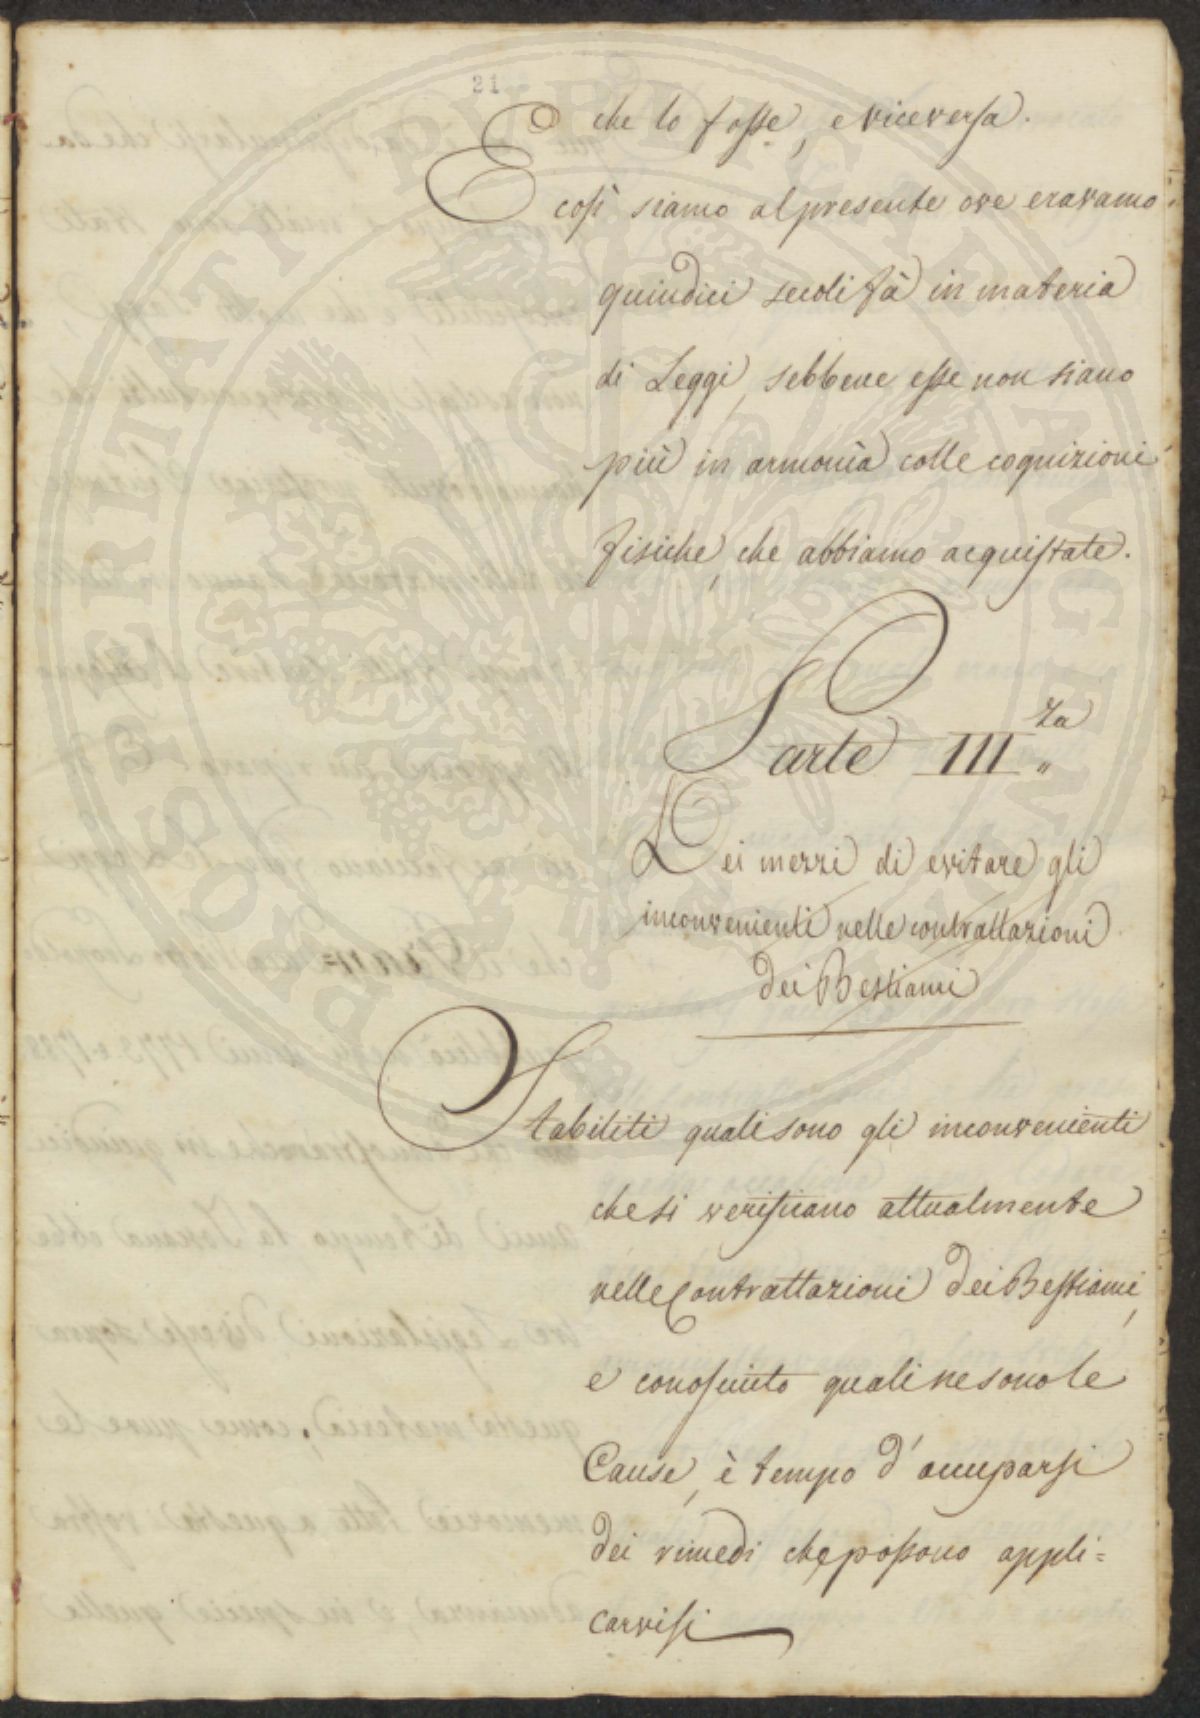 21
che lo fosse, e viceversa.
E così siamo al presente ove eravamo
quindici secoli fà in materia
di Leggi, sebbene esse non siano
più in armonìa colle cognizioni
fisiche, che abbiamo acquistate.
Parte III za
Dei mezzi di evitare gli
inconvenienti nelle contrattazioni
dei Bestiami
Stabiliti quali sono gli inconvenienti
che si verificano attualmente
nelle Contrattazioni dei Bestiami,
e conosciuto quali ne sono le
Cause, è tempo d'occuparsi
dei rimedi che possono appli=
carvisi
PROSPERITATI PVBLICAE AVGENDAE